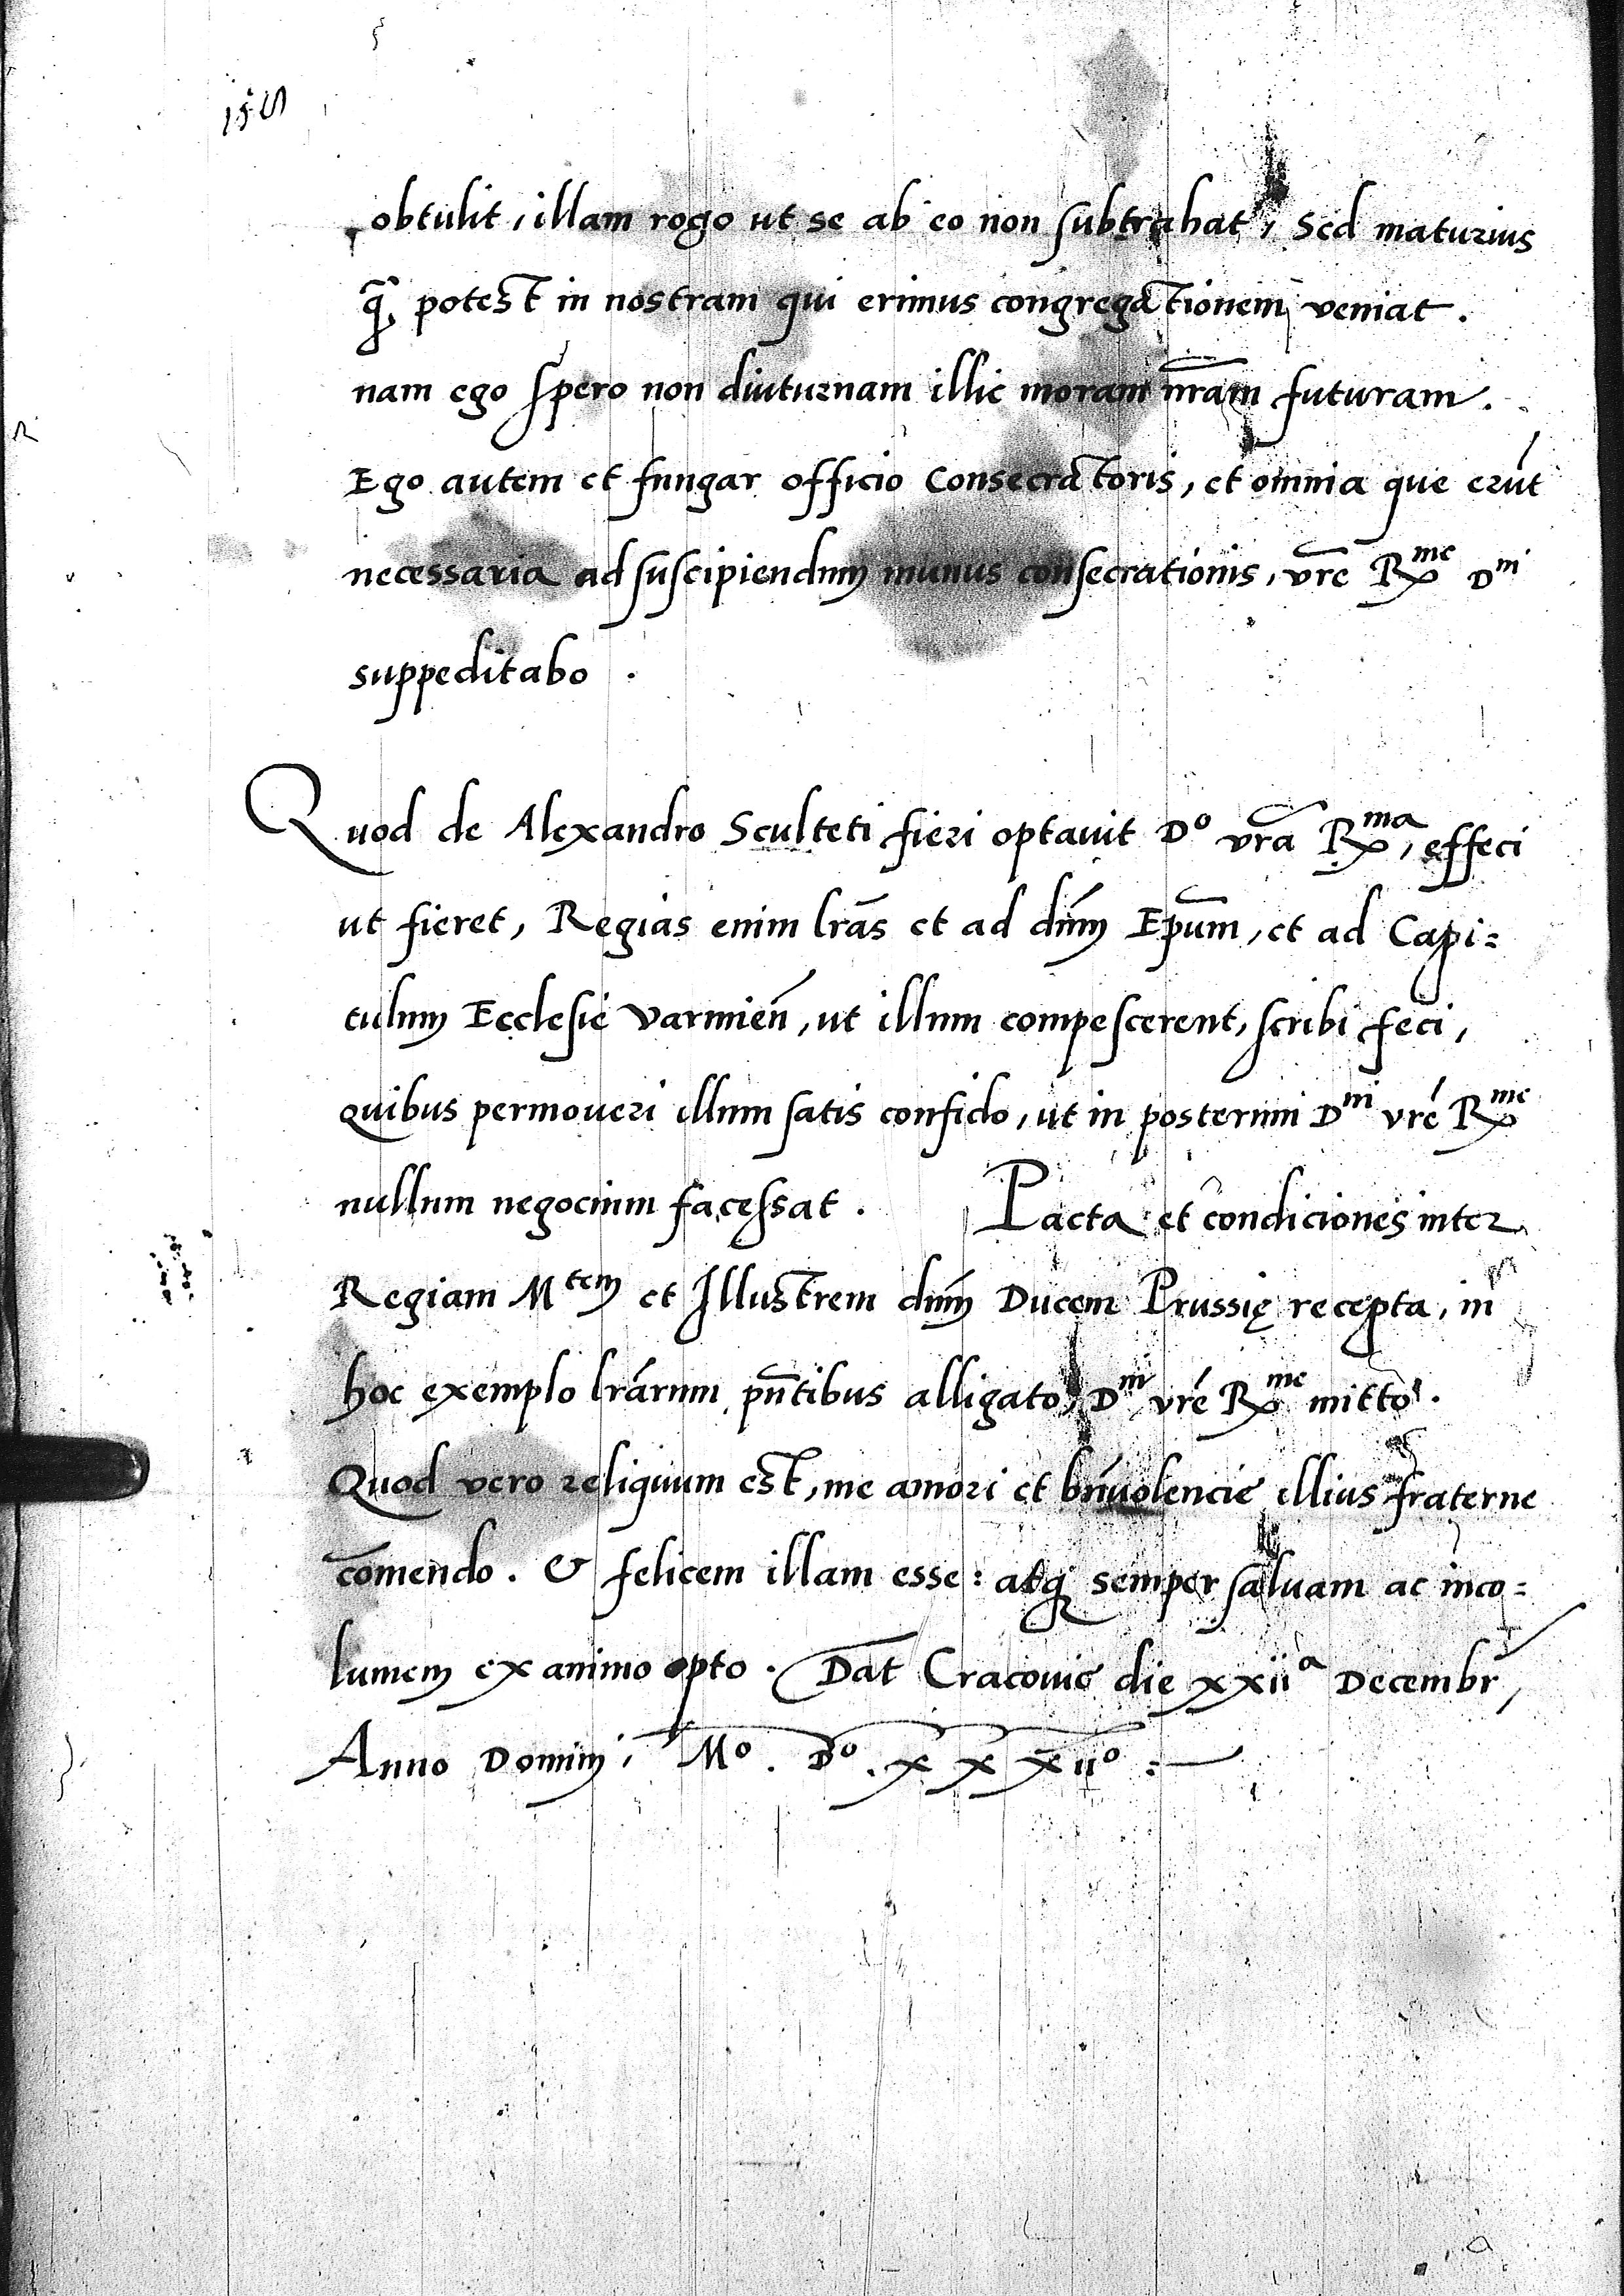 obtulit, illam rogo ut se ab eo non subtrahat, Sed maturius
q̃ potest in nostram qui erimus congregationem veniat.
nam ego spero non diuturnam illic moram nr̃am futuram.
Ego autem et fungar officio Consecratoris, et omnia que erũt
necessaria ad suscipiendum munus consecrationis, vr̃e Rme Dni
suppeditabo.
Quod de Alexandro Sculteti fieri optavit Do vr̃a Rma, effeci
ut fieret, Regias enim lr̃as et ad dñm Ep̃um, et ad Capi=
tulum Ecclesie Varmień, ut illum compescerent, scribi feci,
quibus permoveri illum satis confido, ut in posterum Dni vr̃e Rme
nullum negocium facessat. Pacta et condiciones inter
Regiam Mtem et Illustrem dñm Ducem Prussię recepta, in
hoc exemplo lr̃arum pñtibus alligato, Dni vr̃e Rme mitto.
Quod vero reliquum est, me amori et bñvolencie illius fraterne
com̃endo. & felicem illam esse: atq; semper salvam ac inco=
lumem ex animo opto. Dat Cracovie die xxiia Decembr,
Anno Domini, Mo. Do. xxxiio:—